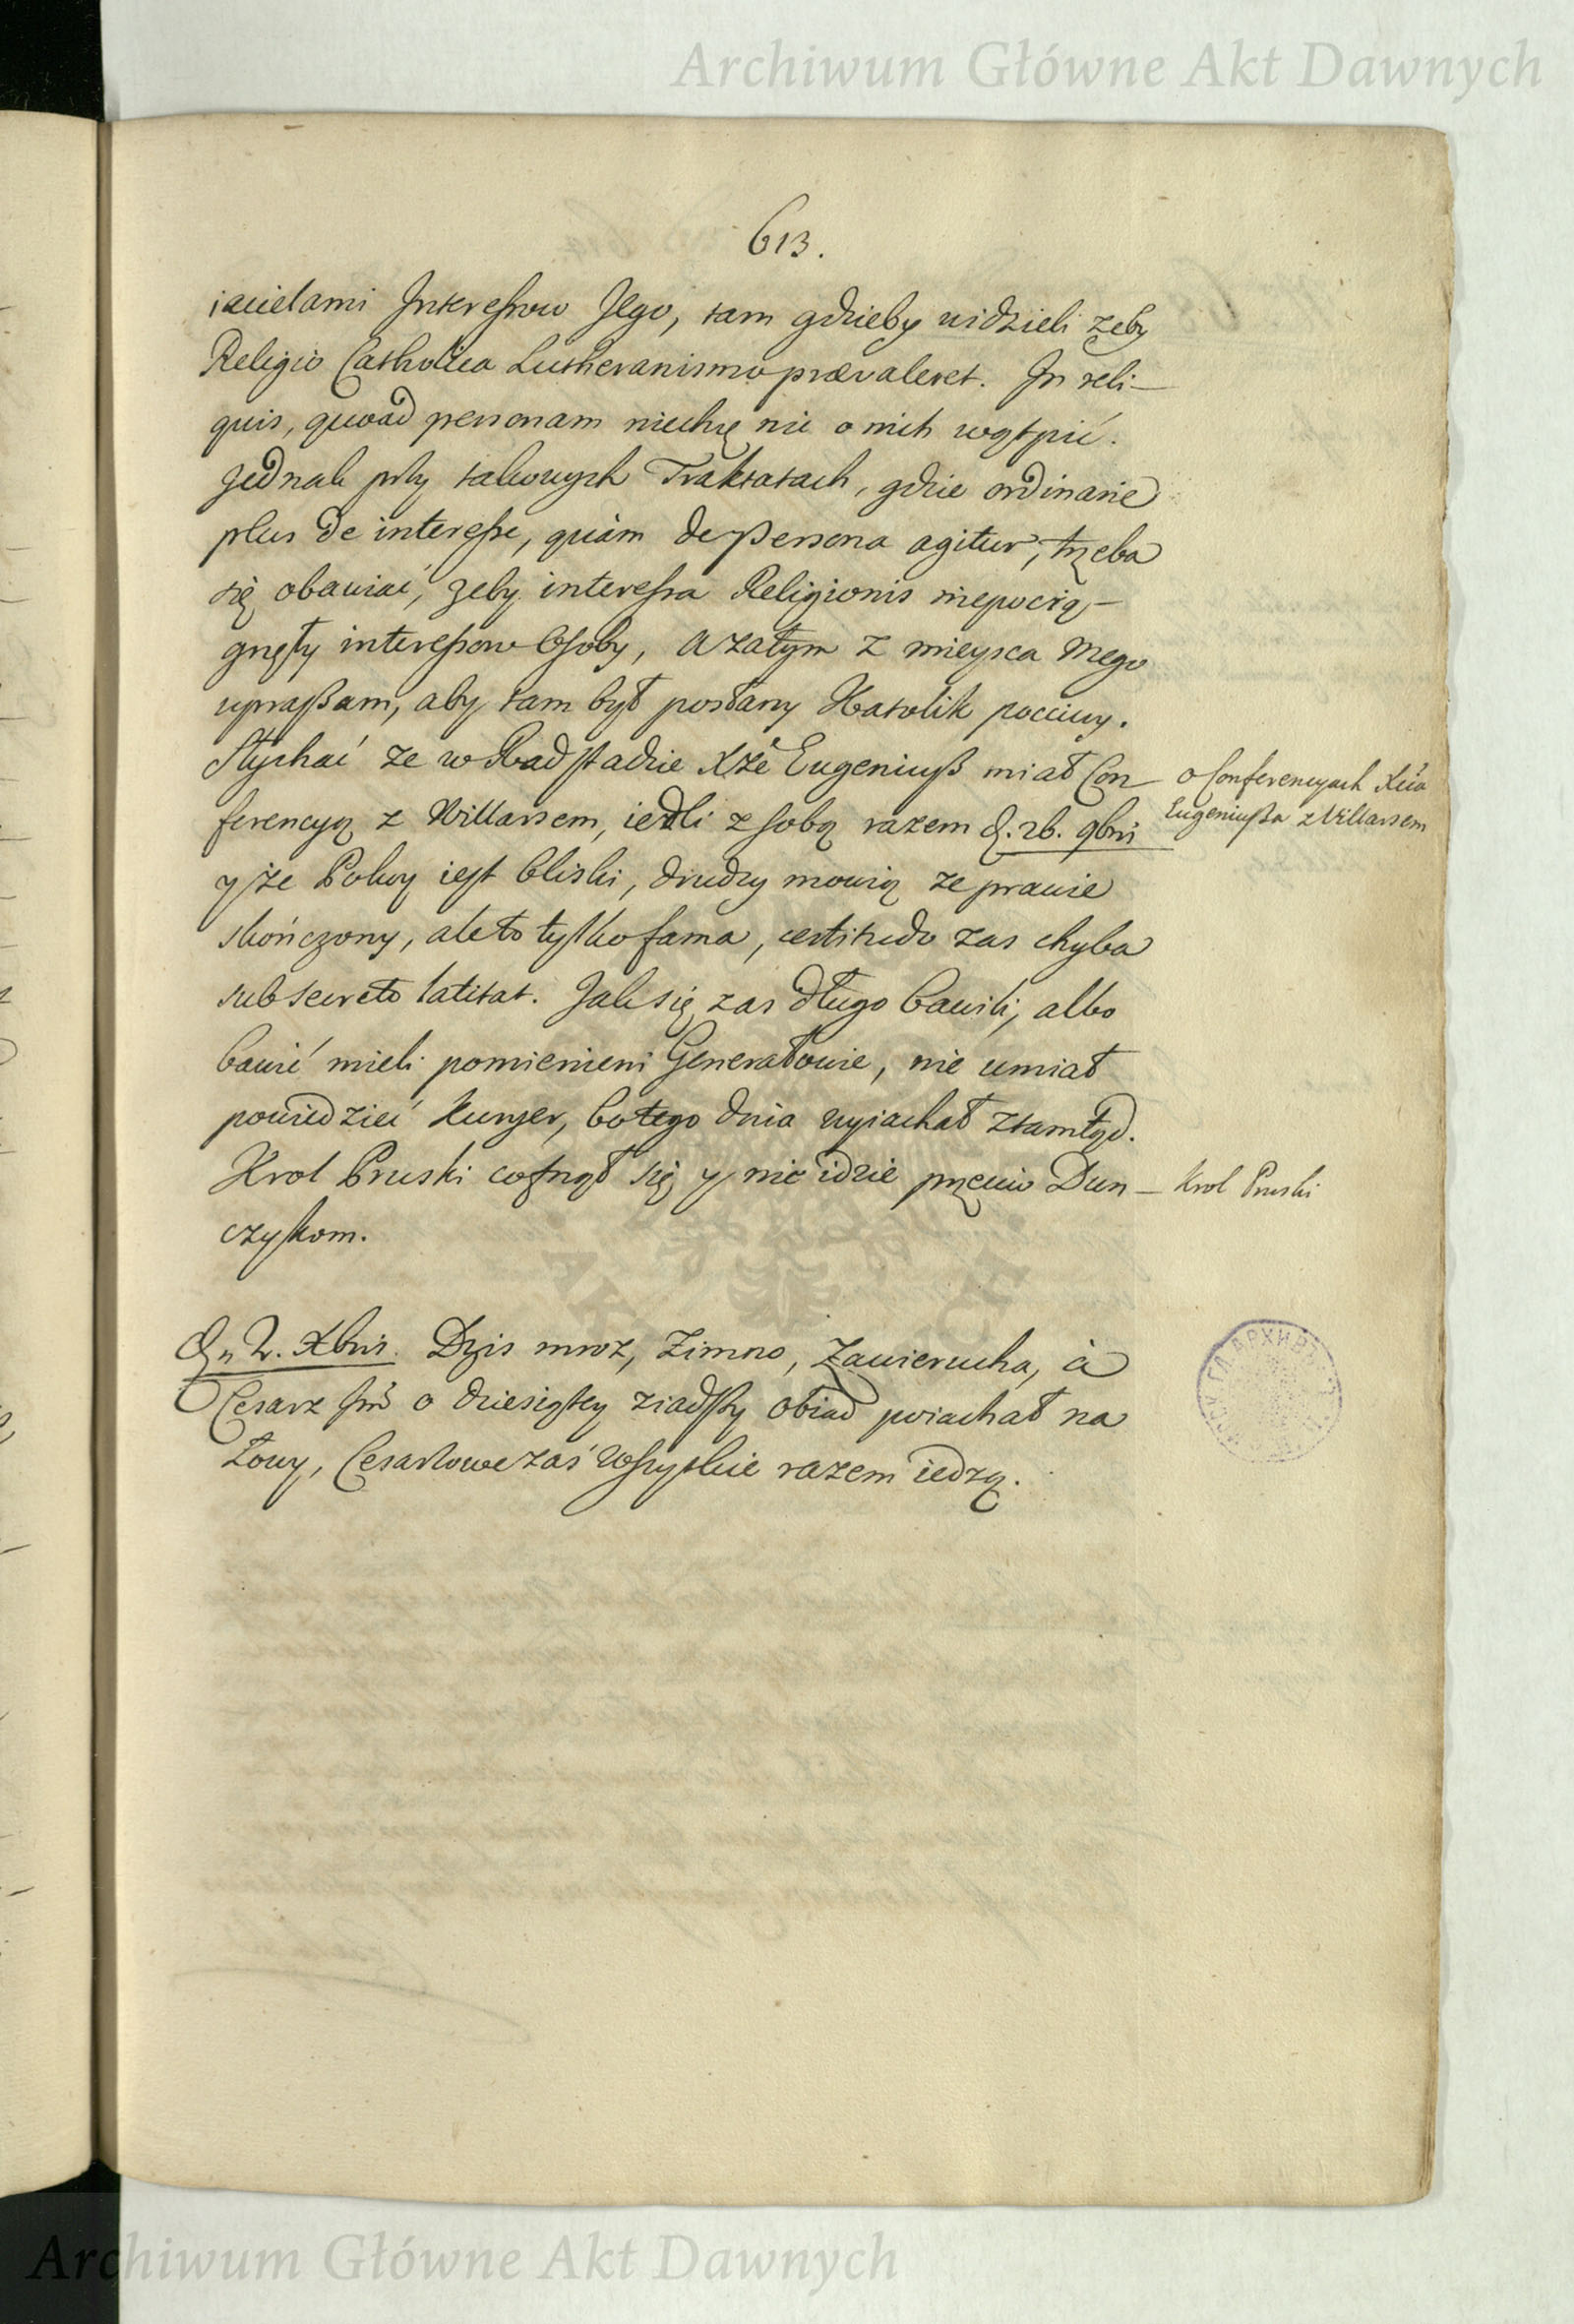 Archiwum Główne Akt Dawnych
613.
iacielami Interessow Jego, tam gdzieby widzieli zeby
Religio Catholica Lutheranismo prævaleret. In reli-
quis, quoad personam niechę nic o nich wątpić.
Jednak przy takowych Traktatach, gdzie ordinarie
plus de interesse, quàm de Persona agitur, trzeba
się obawiać, zeby interessa Religionis niepocią-
gnęły interessow Osoby, a zatym z mieysca mego
upraßam, aby tam był posłany Katolik poczciwy.
Słychać ze w Radstadzie Xżę Eugeniuß miał Con-
ferencyą z Willarsem, iedli z sobą razem d. 26. 9bris
y że Pokoy iest bliski, drudzy mowią ze prawie
skończony, ale to tylko fama, certitudo zas chyba
sub secreto latitat. Jak się zas długo bawili, albo
bawić mieli pomienieni Generałowie, nie umiał
powiedzieć Kuryer, bo tego dnia wyiachał ztamtąd.
Krol Pruski cofnął się y nie idzie przeciw Dun-
czykom.
o Conferencyach Xcia
Eugeniußa z Villarsem
Krol Pruski
Dn 2. Xbris. Dzis mroz, zimno, zawierucha, à
Cesarz Jmć o dziesiątey ziadszy obiad poiachał na
Łowy, Cesarzowe zaś wszystkie razem iedzą.
Archiwum Główne Akt Dawnych